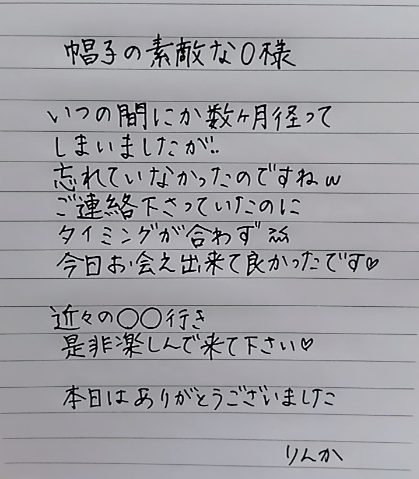 帽子の素敵なO様
いつの間にか数ヶ月経って
しまいましたが!!
忘れていなかったのですねw
ご連絡下さっていたのに
タイミングが合わず
今日お会え出来て良かったです♡
近々の〇〇行き
是非楽しんで来て下さい♡
本日はありがとうございました
りんか